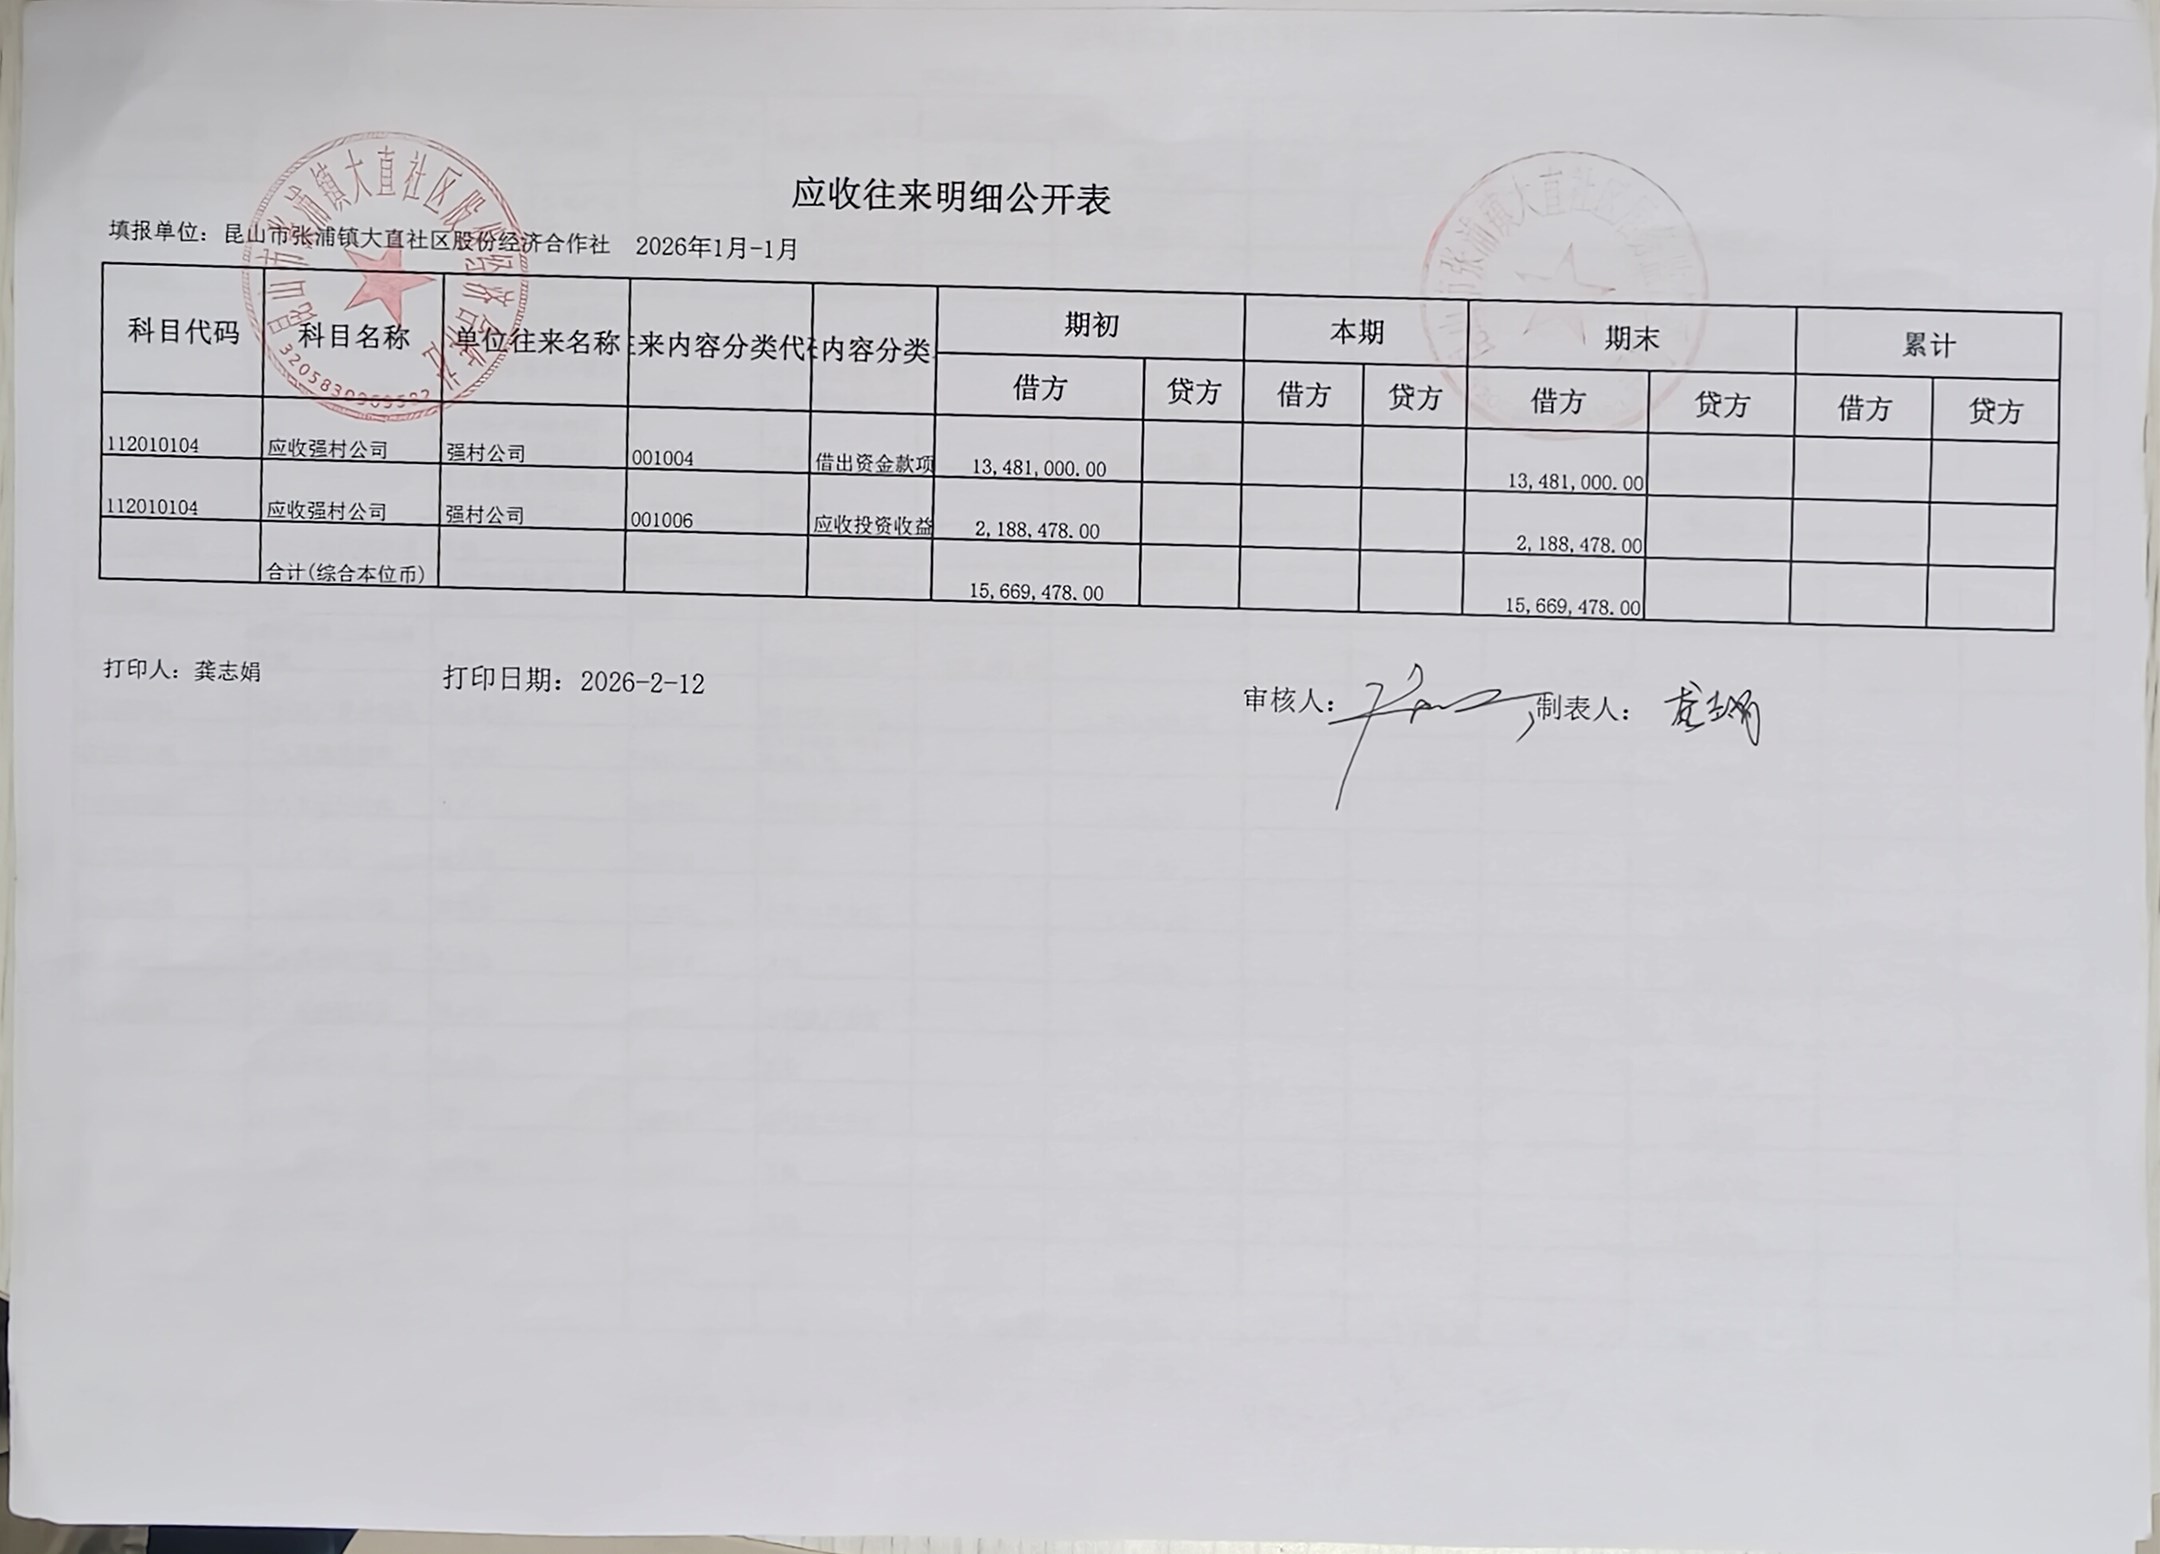 应收往来明细公开表
填报单位：昆山市张浦镇大直社区股份经济合作社 2026年1月-1月
科目代码 科目名称 单位往来名称 来内容分类代 内容分类 期初 本期 期末 累计
借方 贷方 借方 贷方 借方 贷方 借方 贷方
112010104 应收强村公司 强村公司 001004 借出资金款项 13,481,000.00 13,481,000.00
112010104 应收强村公司 强村公司 001006 应收投资收益 2,188,478.00 2,188,478.00
合计(综合本位币) 15,669,478.00 15,669,478.00
打印人：龚志娟 打印日期：2026-2-12 审核人： 制表人：龚志娟
昆山市张浦镇大直社区股份经济合作社
昆山市张浦镇大直社区